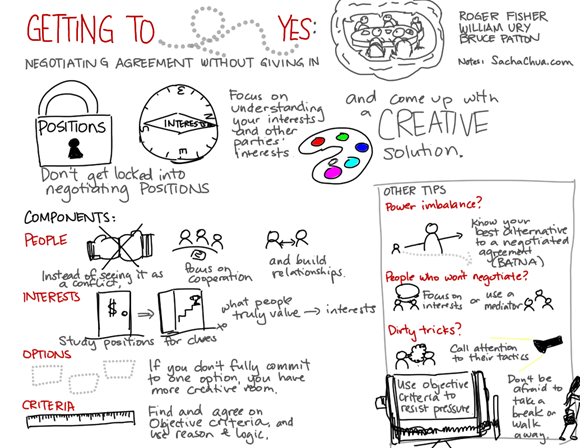 GETTING TO YES:
NEGOTIATING AGREEMENT WITHOUT GIVING IN
ROGER FISHER
WILLIAM URY
BRUCE PATTON
Notes: SachaChua.com
POSITIONS
Don't get locked into
negotiating POSITIONS
N
INTERESTS
E
S
Focus on
understanding
your interests
and other
parties'
interests
and come up with
a
CREATIVE
solution.
COMPONENTS:
PEOPLE
Instead of seeing it as
a conflict,
focus on
cooperation
and build
relationships.
INTERESTS
$
what people
truly value → interests
Study positions for clues
OPTIONS
If you don't fully commit
to one option, you have
more creative room.
CRITERIA
Find and agree on
Objective criteria, and
use reason & logic.
OTHER TIPS
Power imbalance?
Know your
best alternative
to a negotiated
agreement
(BATNA)
People who won't negotiate?
Focus on
interests
or
use a
mediator
Dirty tricks?
Call attention
to their tactics
Use objective
criteria to
resist pressure
Don't be
afraid to
take a
break or
walk
away.